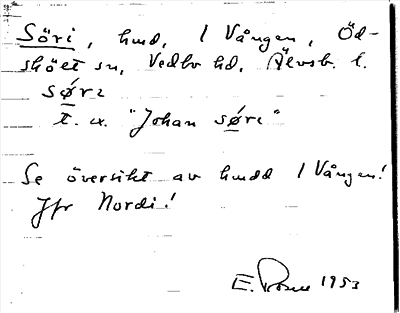 Söri, hmd, 1 Vången, Öd-
sköet sn, Vedbo hd, Älvsb. l.
sǿri
t. ex. "Johan sǿri"
Se översikt av hmdd 1 Vången!
Jfr Nordi!
E. 1953